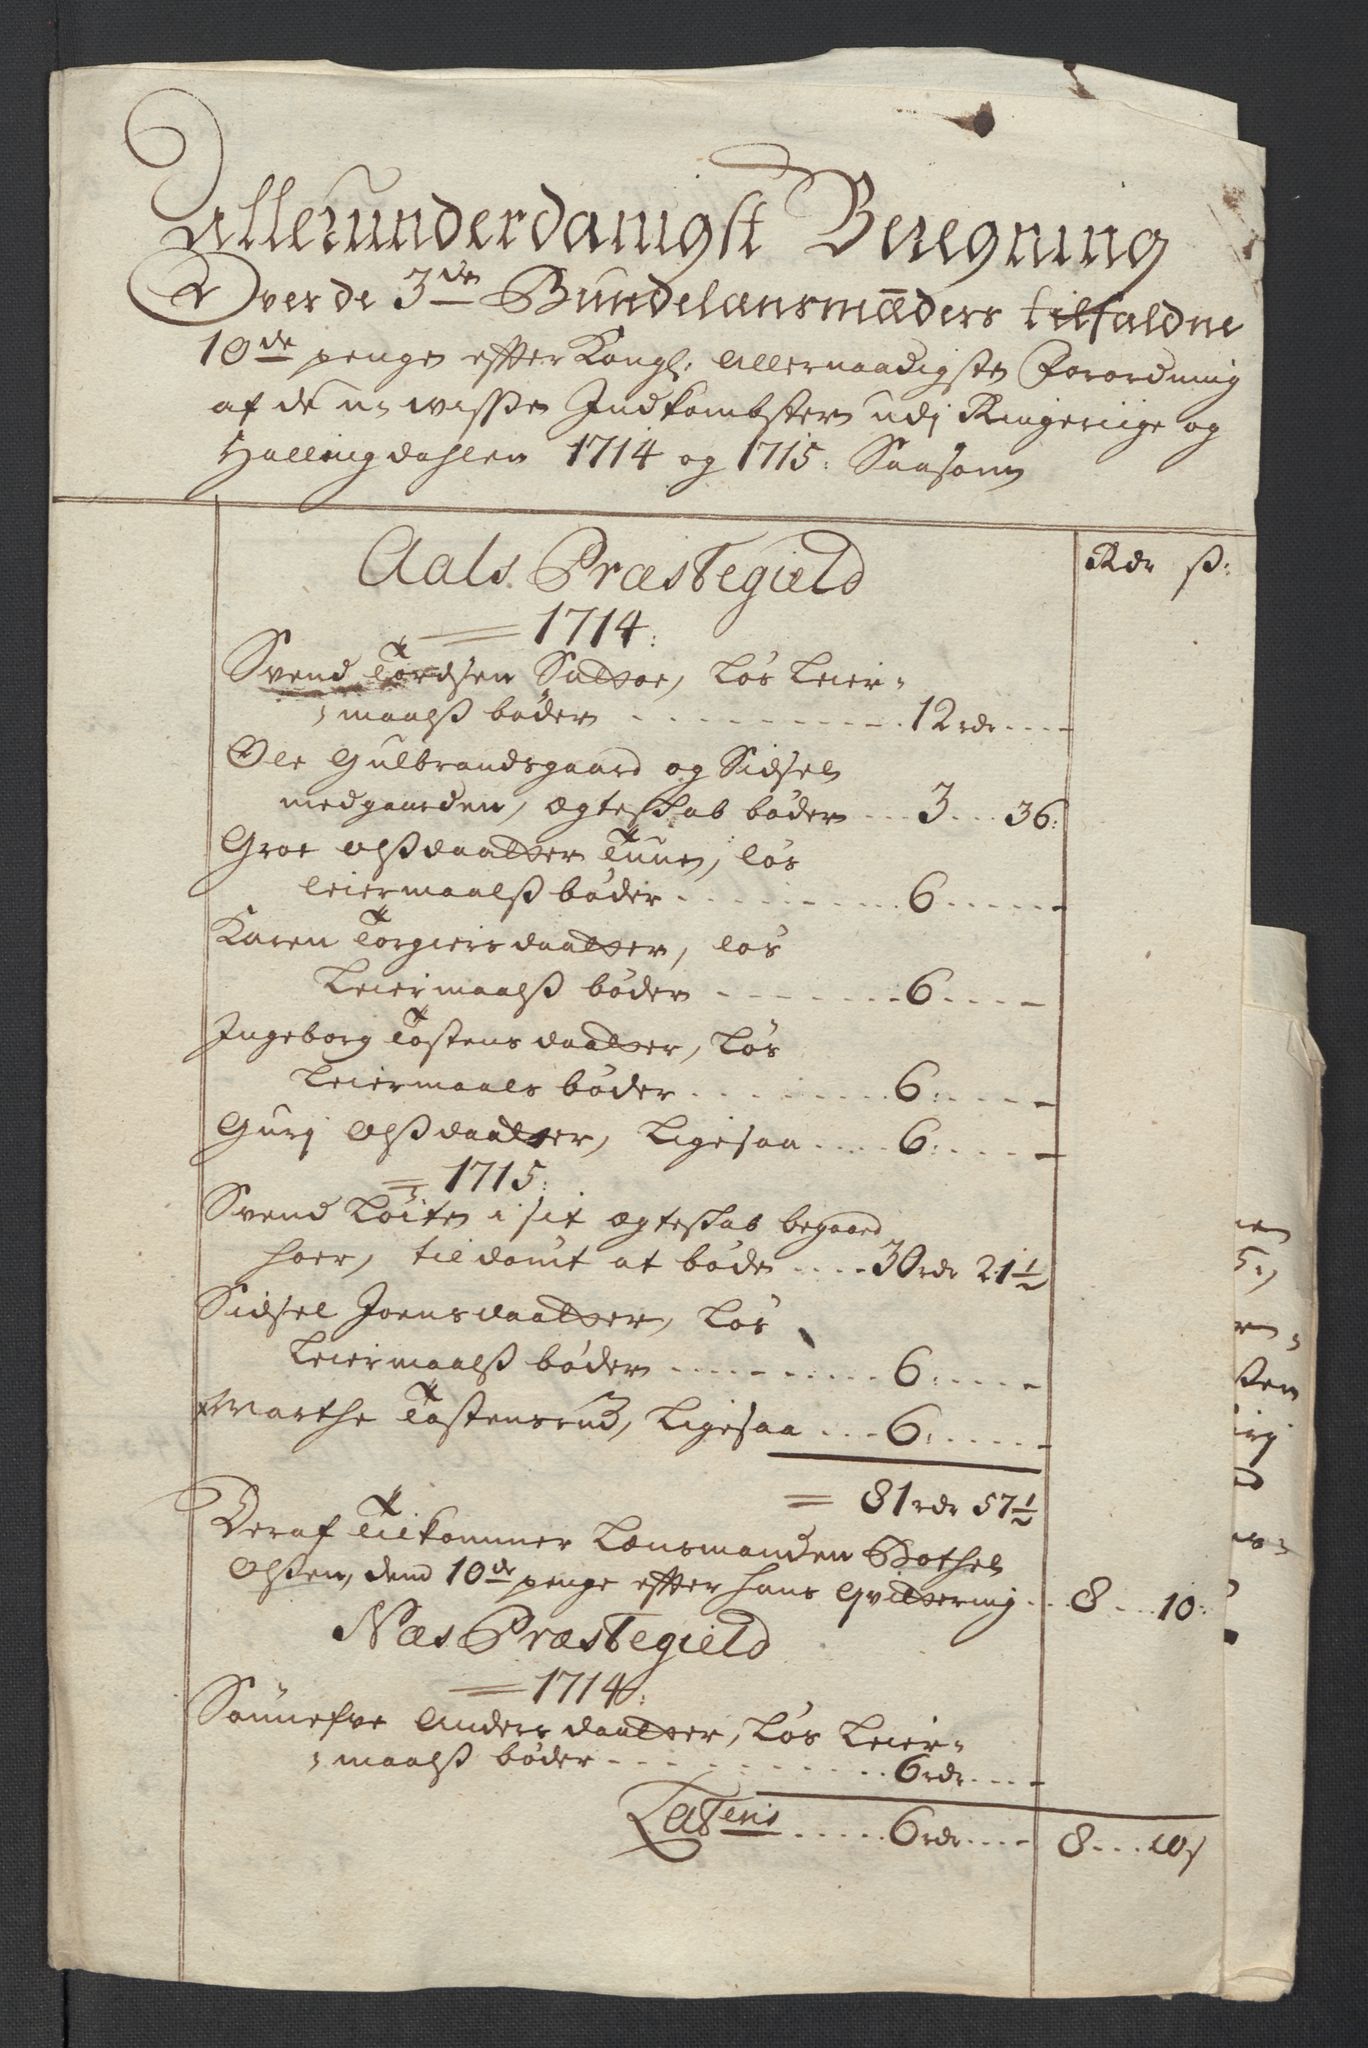 Allerunderdanigst Beregning
Over de 3de Bundelænsmæders tilfaldne
10de penge efter Kongl: Allernaadigste Forordning
af de u-wisse Indkombster udj Ringeriige og
Hallingdahlen 1714 og 1715: Saasom
Rdr ß:
Aals Præstegield
1714:
Svend Tordsen Sattøe, løs leier-
maalß bøder 12rdr
Ole Gulbrandsgaard og Sidsel
medgaarden, ægteskab bøder 3 36:
Groe Olßdaatter Tune, løs
leiermaalß bøder 6
Karen Torgiersdaatter, løs
Leiermaalß bøder 6
Ingeborg Tostensdaatter, løs
Leiermaals bøder 6:
Gurj Olßdaatter, Ligesaa 6:
1715:
Svend Løiten i sit ægteskab begaaed
hoer, tildømt at bøde 30rdr 21½
Sidsel Joensdaatter, løs
Leiermaalß bøder 6:
Marthe Tostensrud, Ligesaa 6:
81rdr 57½
Deraf Tilkommer Lensmanden Bothel
Olßen, dend 10de penge efter hans Qvittering 8 10:
Næs Præstegield
1714:
Sønnefve Andersdaatter, løs leier-
maalß bøder 6rdr
Lateris 6rdr 8 10ß